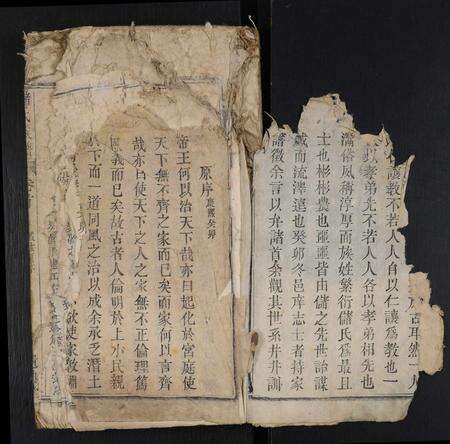 言耳然一人
讓教不若人人自以仁讓為教也一
以孝弟先不若人人各以孝弟相先也
俗風稱淳厚而族姓繁衍儲氏為最且
士也彬彬農也噩噩皆由儲之先世詒謀
而流澤遠也癸卯冬邑庠志士者持家
譜徵余言以弁諸首余觀其世系井井訓
原序康熙癸卯
帝王何以治天下哉亦曰起化於宮庭使
天下無不齊之家而已矣而家何以言齊
哉亦曰使天下之人之家無不正倫理篤
恩義而已矣故古者人倫明於上小民親
於下而一道同風之治以成余承乏潛土
欲使家